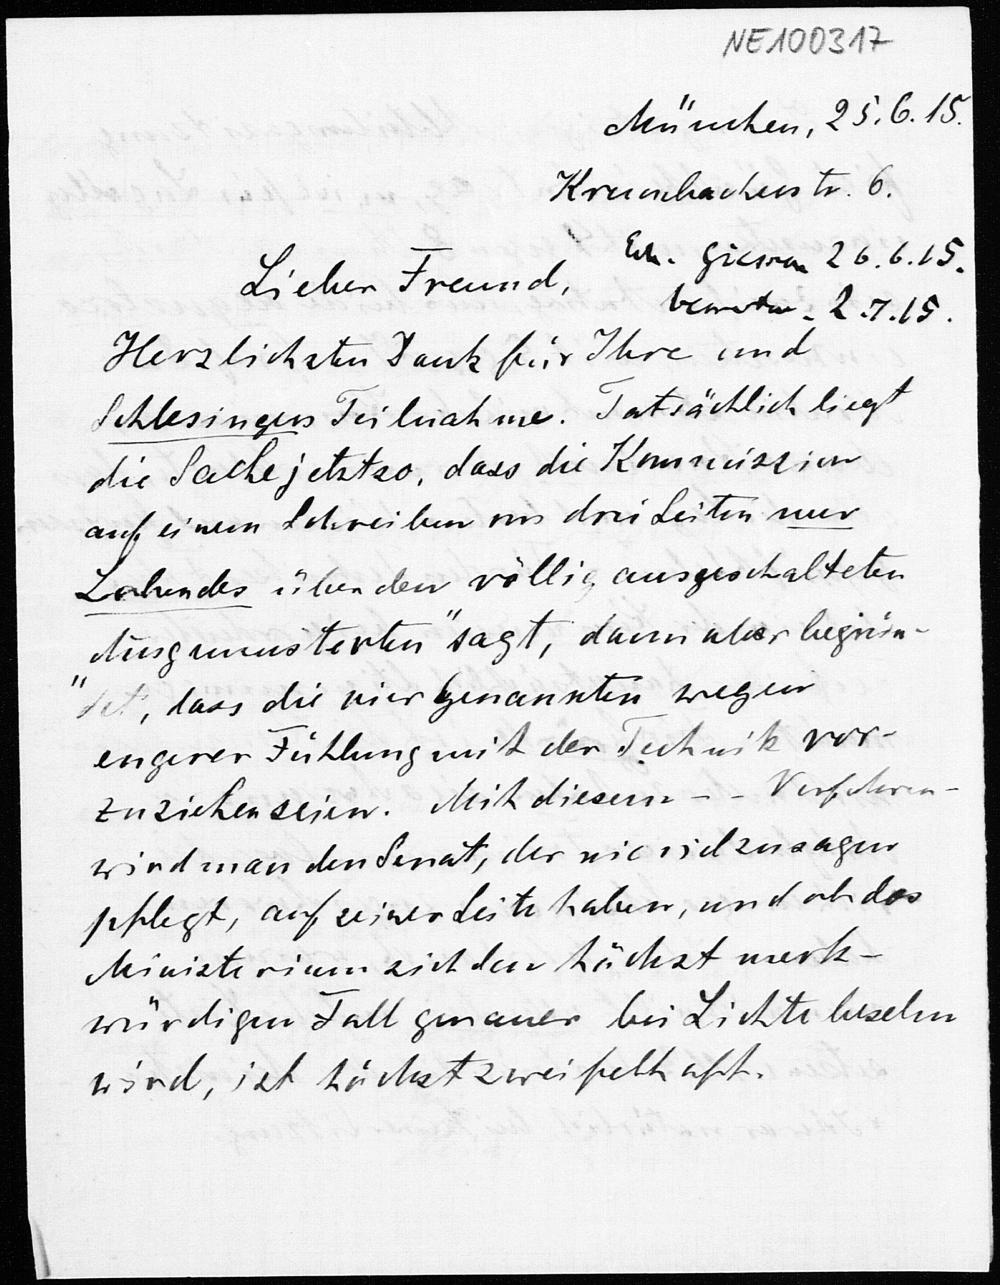 NE100317
München, 25.6.15.
Krumbacherstr. 6.
Erh. Giessen 26.6.15.
beantw. 2.7.15.
Lieber Freund,
Herzlichsten Dank für Ihre und
Schlesingers Teilnahme. Tatsächlich liegt
die Sache jetzt so, dass die Kommission
auf einem Schreiben von drei Seiten nur
Lobendes über den völlig ausgeschalteten
"Ausgemusterten" sagt, dann aber begrün-
"det", dass die vier Genannten wegen
engerer Fühlung mit der Technik vor-
zuziehen seien. Mit diesem - - Verfahren -
wird man den Senat, der nie viel zu sagen
pflegt, auf seiner Seite haben, und ob das
Ministerium sich den höchst merk-
würdigen Fall genauer bei Lichte besehen
wird, ist höchst zweifelhaft.